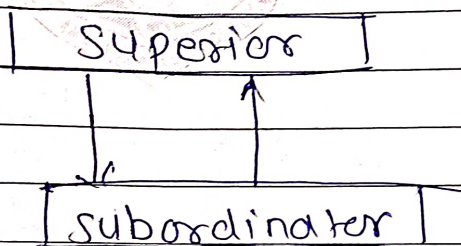 Superior
subordinater